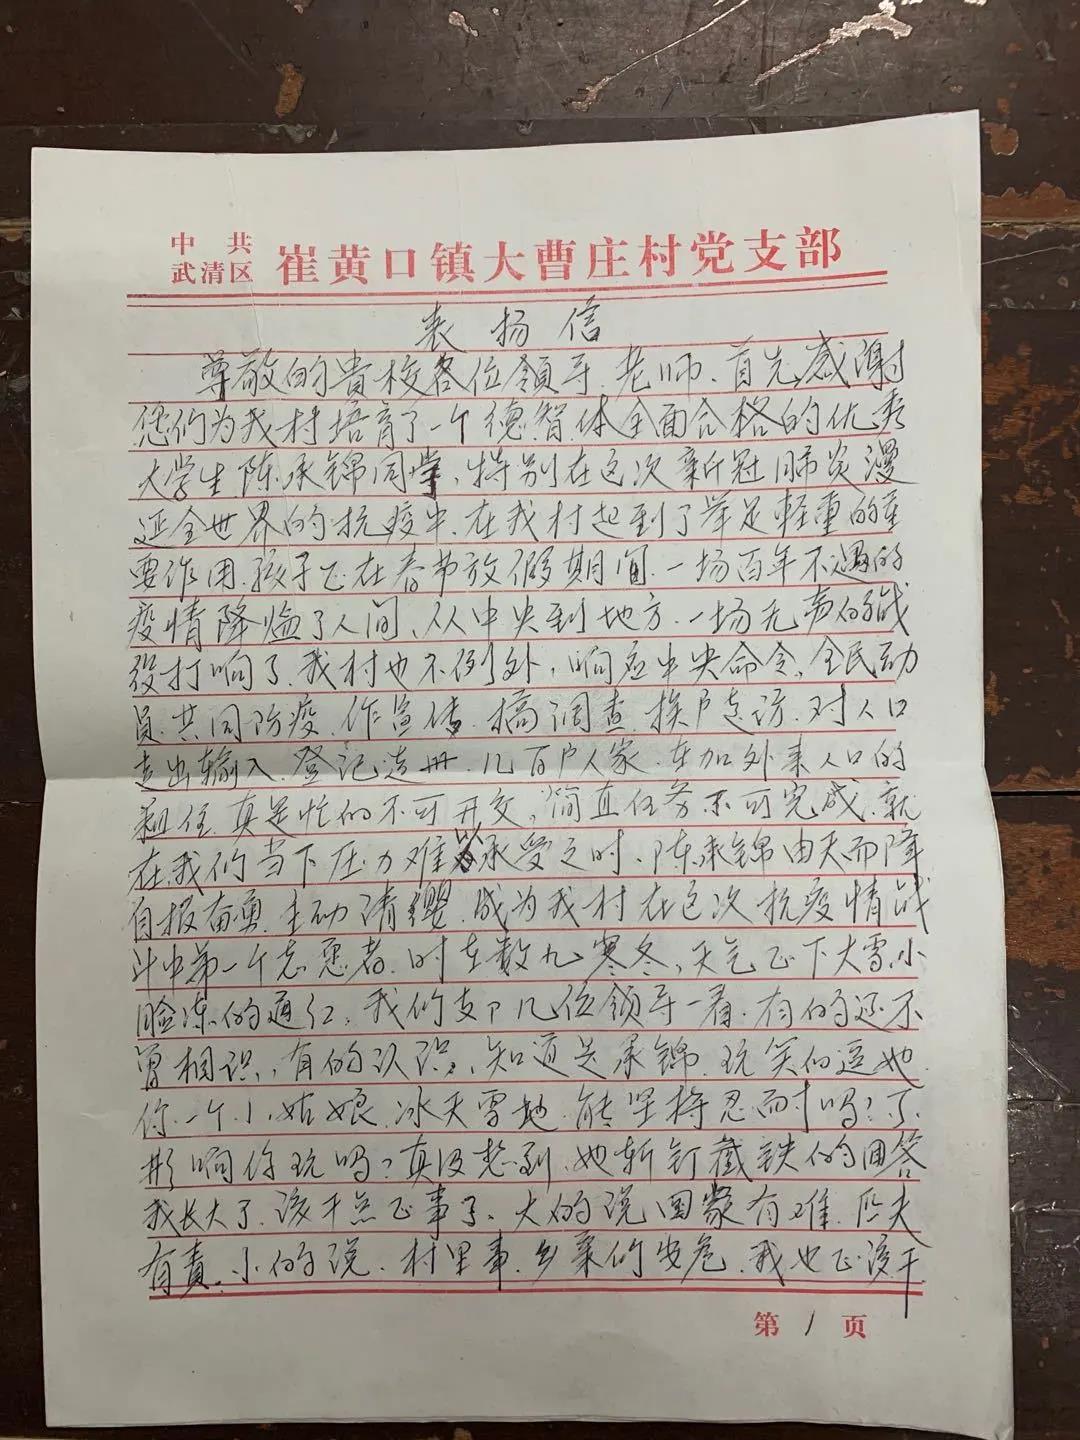 中共
武清区 崔黄口镇大曹庄村党支部
表扬信
尊敬的贵校各位领导、老师、首先感谢
您们为我村培育了一个德智体全面合格的优秀
大学生陈承锦同学、特别在这次新冠肺炎漫
延全世界的抗疫中、在我村起到了举足轻重的重
要作用、孩子正在春节放假期间、一场百年不遇的
疫情降临了人间、从中央到地方、一场无声的战
役打响了、我村也不例外，响应中央命令、全民动
员、共同防疫、作宣传、搞调查、挨户走访、对人口
走出输入、登记造册、几百户人家、在加外来人口的
租住、真是忙的不可开交，简直任务不可完成、就
在我们当下压力难以承受之时、陈承锦由天而降
自报奋勇、主动请缨、成为我村在这次抗疫情战
斗中第一个志愿者、时在数九寒冬、天气正下大雪、小
脸冻的通红、我们支部几位领导一看、有的还不
曾相识，有的认识、知道是承锦、玩笑似逗她
你一个小姑娘、冰天雪地、能坚持忍耐吗？不
影响你玩吗？真没想到、她斩钉截铁的回答
我长大了、该干点正事了、大的说国家有难、匹夫
有责、小的说、村里事、乡亲们安危、我也正该干
第 1 页